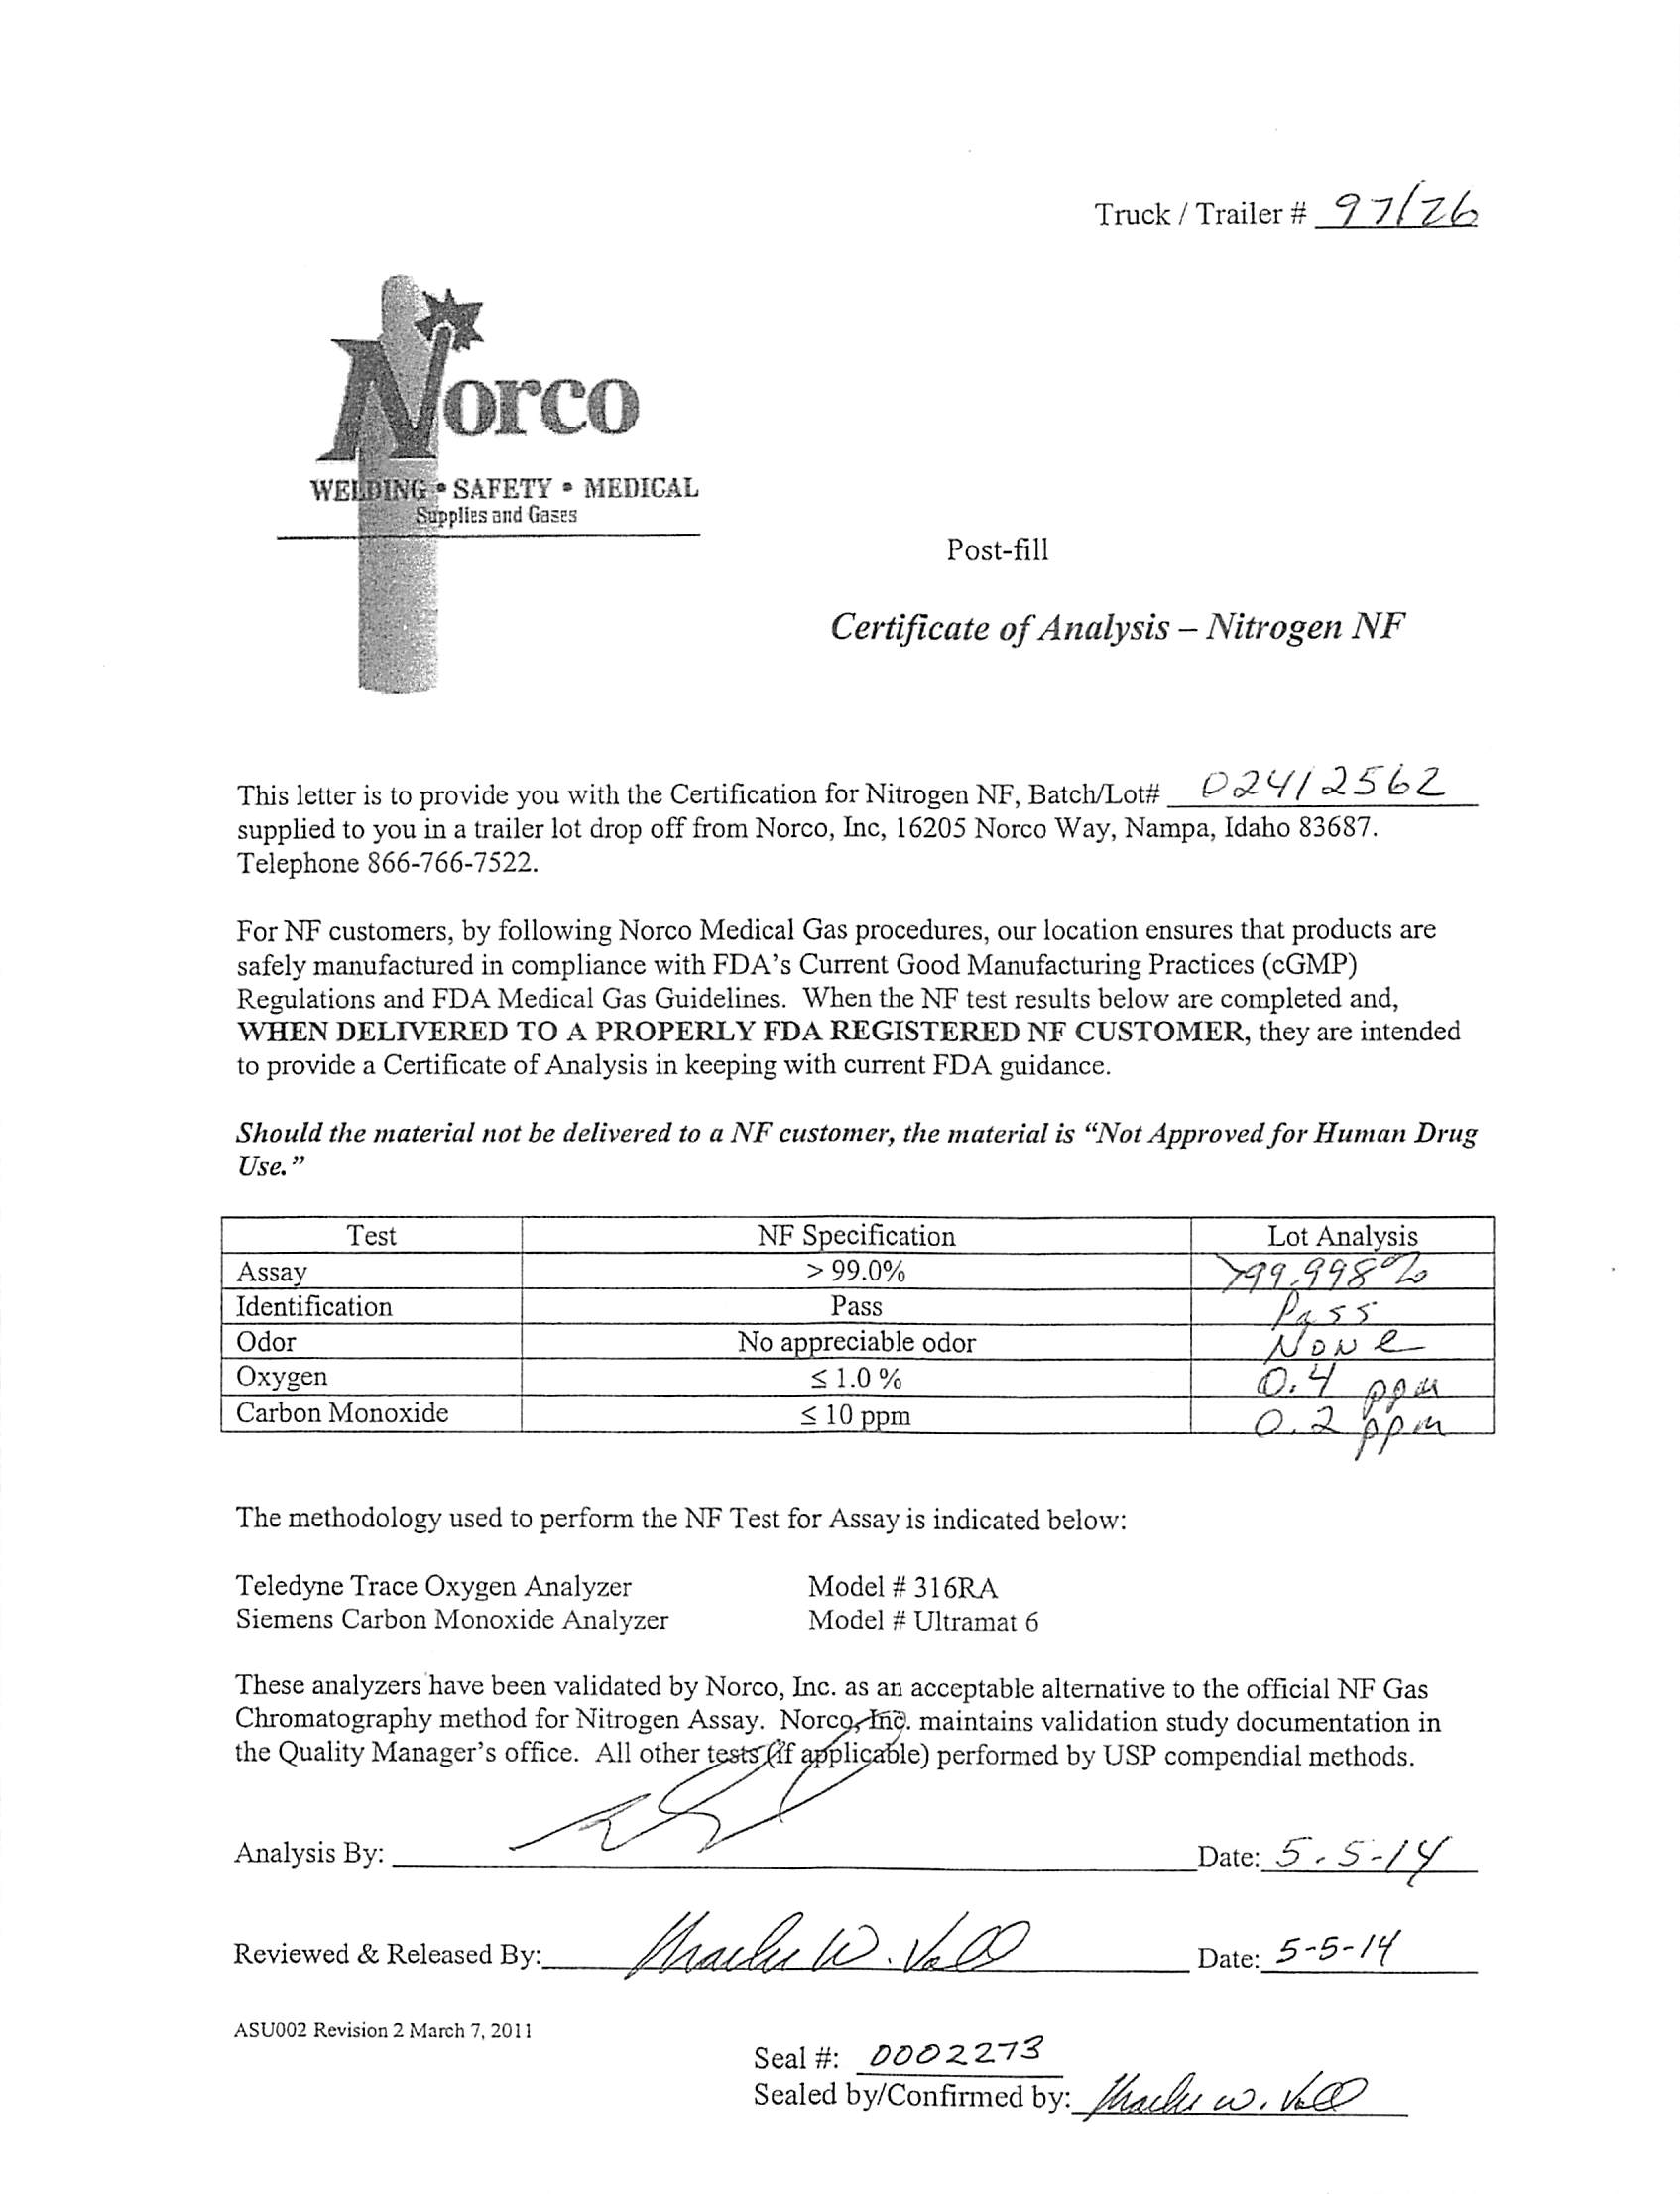 Truck / Trailer # 97/26
Norco
WELDING • SAFETY • MEDICAL
Supplies and Gases
Post-fill
Certificate of Analysis – Nitrogen NF
This letter is to provide you with the Certification for Nitrogen NF, Batch/Lot# 02412562
supplied to you in a trailer lot drop off from Norco, Inc, 16205 Norco Way, Nampa, Idaho 83687.
Telephone 866-766-7522.
For NF customers, by following Norco Medical Gas procedures, our location ensures that products are
safely manufactured in compliance with FDA's Current Good Manufacturing Practices (cGMP)
Regulations and FDA Medical Gas Guidelines. When the NF test results below are completed and,
WHEN DELIVERED TO A PROPERLY FDA REGISTERED NF CUSTOMER, they are intended
to provide a Certificate of Analysis in keeping with current FDA guidance.
Should the material not be delivered to a NF customer, the material is “Not Approved for Human Drug
Use.”
Test NF Specification Lot Analysis
Assay > 99.0% >99.998%
Identification Pass Pass
Odor No appreciable odor None
Oxygen ≤ 1.0 % 0.4 ppm
Carbon Monoxide ≤ 10 ppm 0.2 ppm
The methodology used to perform the NF Test for Assay is indicated below:
Teledyne Trace Oxygen Analyzer Model # 316RA
Siemens Carbon Monoxide Analyzer Model # Ultramat 6
These analyzers have been validated by Norco, Inc. as an acceptable alternative to the official NF Gas
Chromatography method for Nitrogen Assay. Norco, Inc. maintains validation study documentation in
the Quality Manager's office. All other tests (if applicable) performed by USP compendial methods.
Analysis By: Date: 5-5-14
Reviewed & Released By: W. Date: 5-5-14
ASU002 Revision 2 March 7, 2011
Seal #: 0002273
Sealed by/Confirmed by: W.